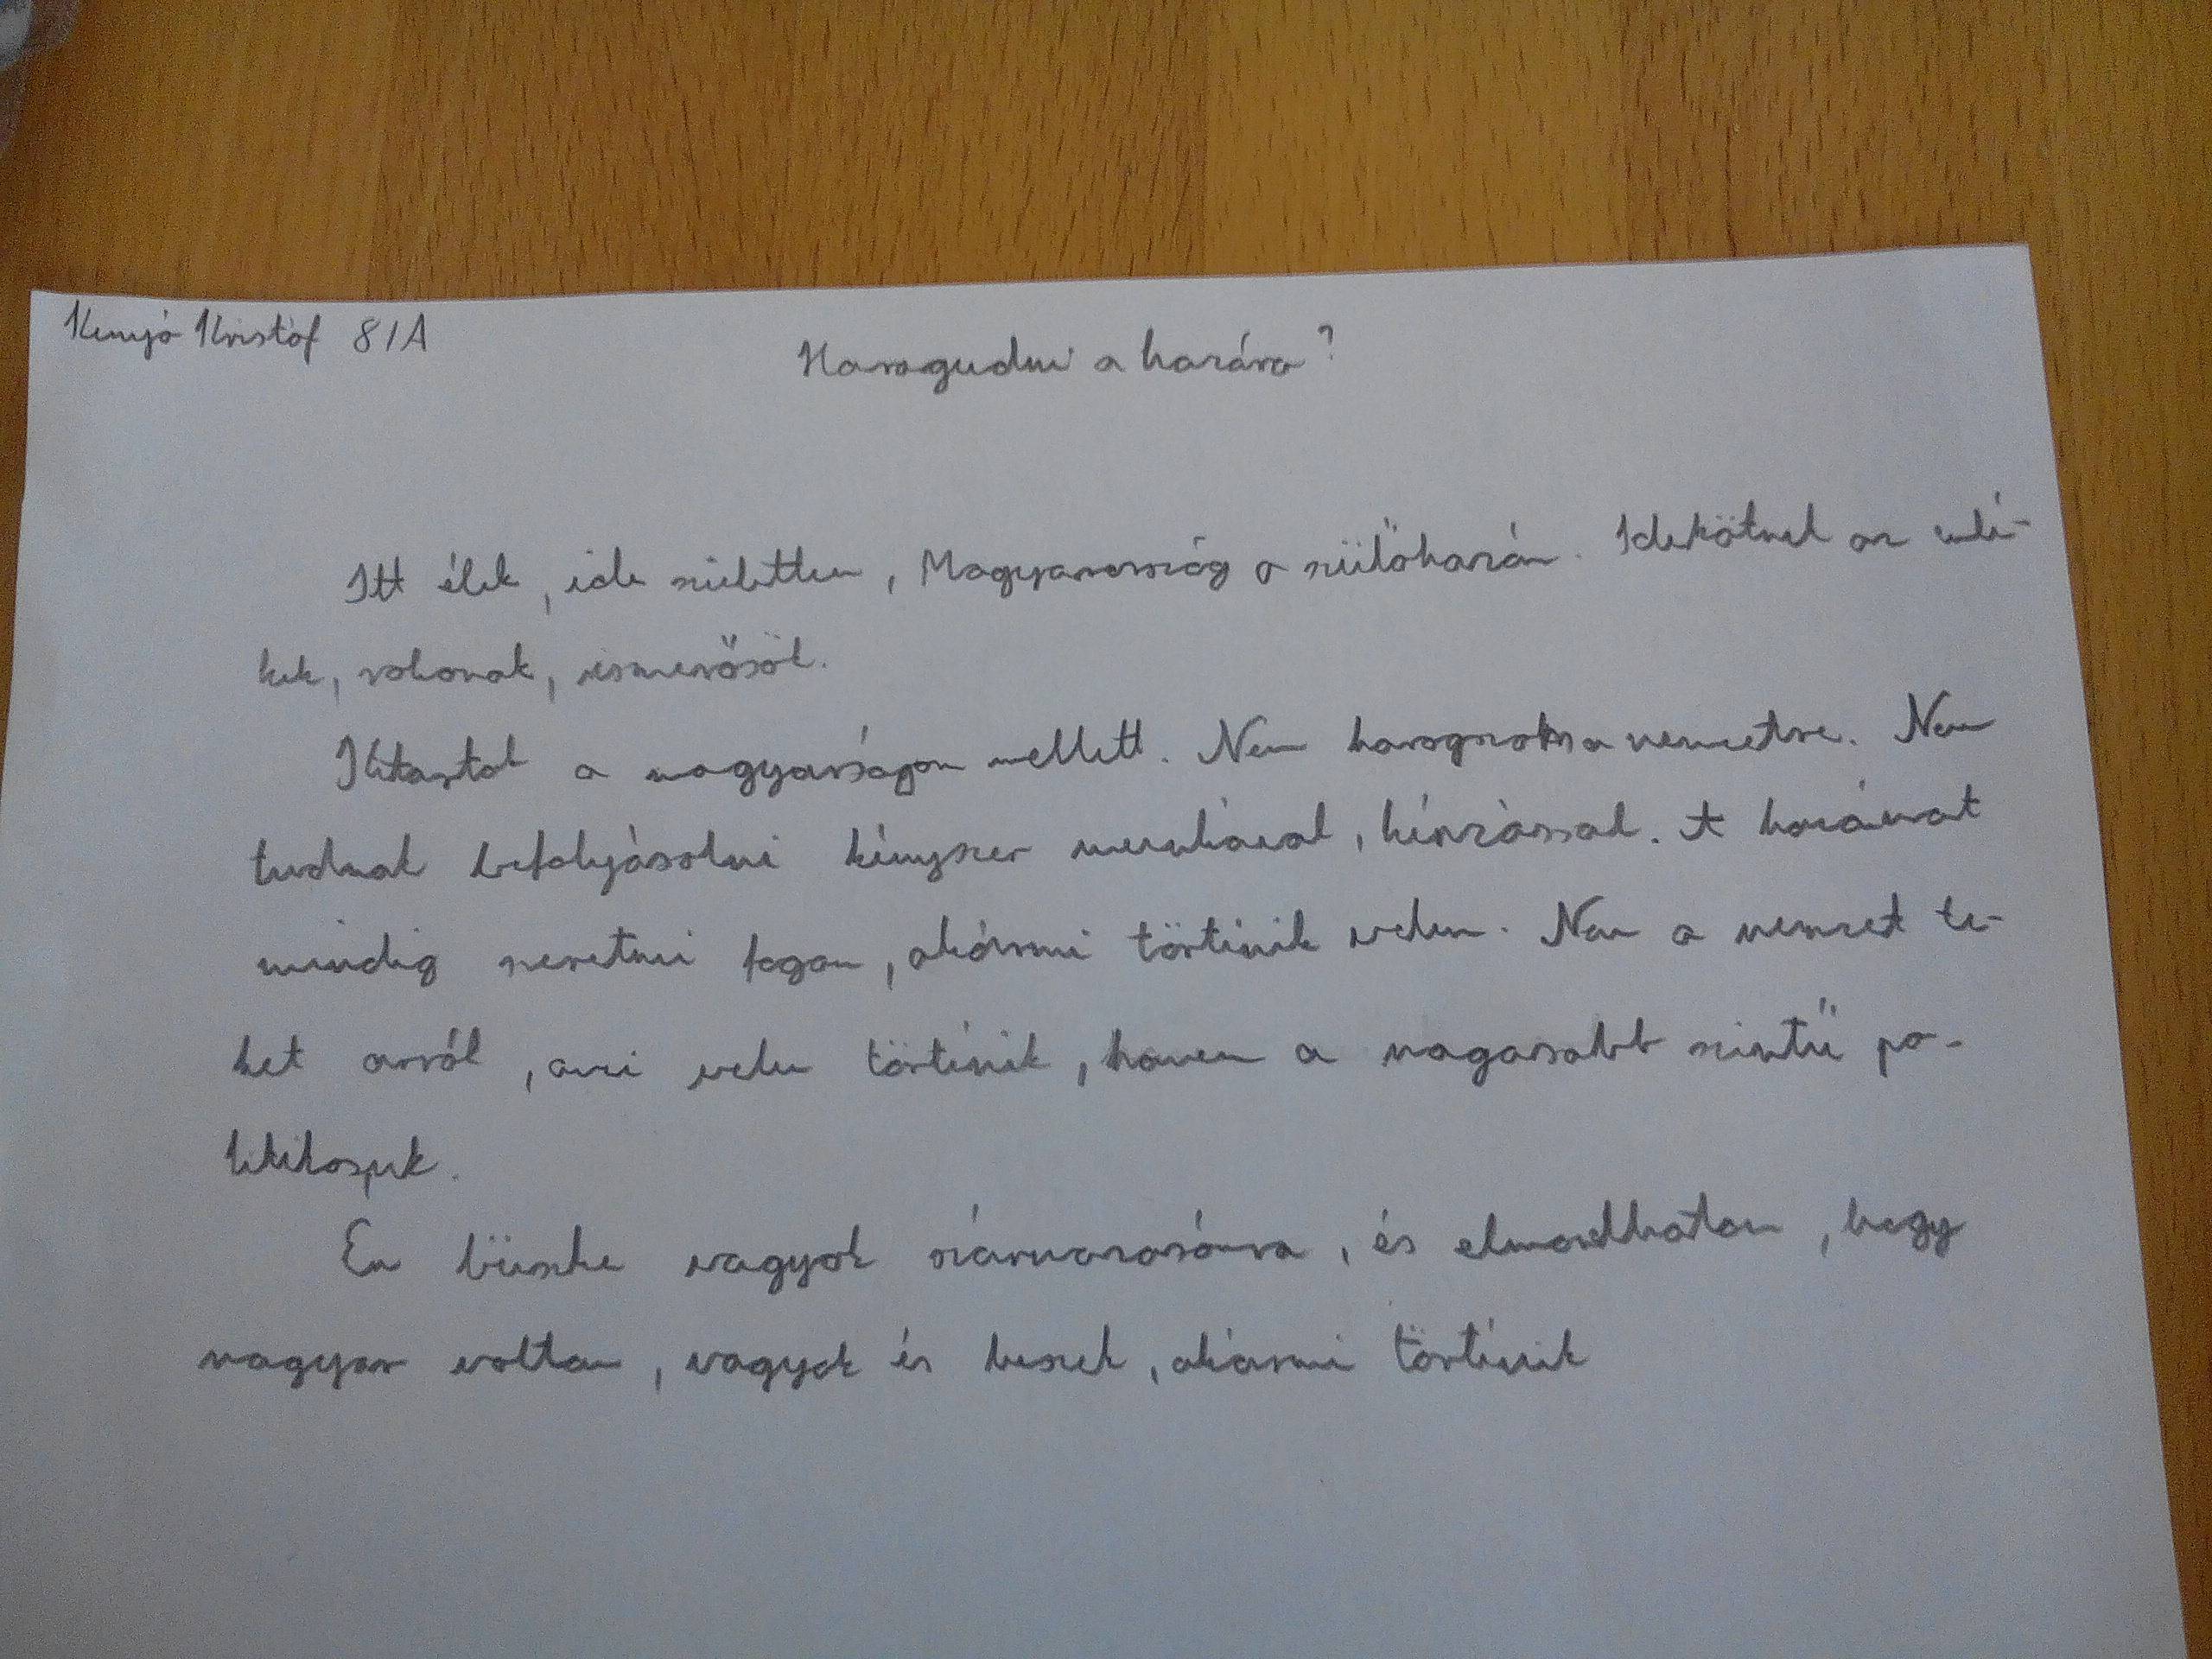 Kenyó Kristóf 8/A
Haragudni a hazára?
Itt élek, ide születtem, Magyarország a szülőhazám. Idekötnek az emlé-
kek, rokonok, ismerősök.
Kitartok a magyarságom mellett. Nem haragszok a nemzetre. Nem
tudnak befolyásolni kényszer munkával, kínzással. A hazámat
mindig szeretni fogom, akármi történik velem. Nem a nemzet te-
het arról, ami velem történik, hanem a magasabb szintű po-
litikusok.
Én büszke vagyok származásomra, és elmondhatom, hogy
magyar voltam, vagyok és leszek, akármi történik